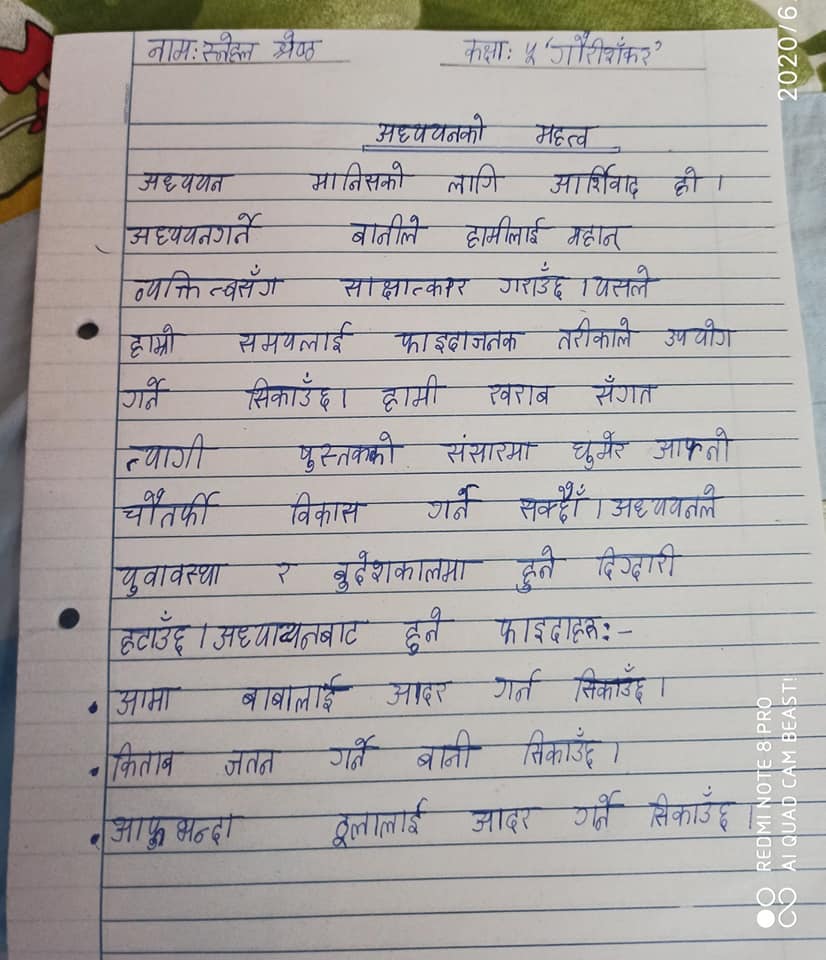 नाम: स्नेहल श्रेष्ठ कक्षा: ५ 'गौरीशँकर'
अध्ययनको महत्व
अध्ययन मानिसको लागि आर्शिवाद हो ।
अध्ययनगर्ने बानीले हामीलाई महान्
व्यक्तित्वसँग साक्षात्कार गराउँछ । यसले
हाम्रो समयलाई फाइदाजनक तरीकाले उपयोग
गर्ने सिकाउँछ। हामी खराब सँगत
त्यागी पुस्तकको संसारमा घुमेर आफ्नो
चौतर्फी विकास गर्ने सक्दौँ । अध्ययनले
युवावस्था र बुदेशकालमा हुने दिग्दारी
हटाउँछ । अध्यायनबाट हुने फाइदाहरू:-
• आमा बाबालाई आदर गर्न सिकाउँछ ।
• किताब जतन गर्ने बानी सिकाउँछ ।
• आफु भन्दा ठूलालाई आदर गर्ने सिकाउँछ ।
2020/6
REDMI NOTE 8 PRO
AI QUAD CAM BEAST!